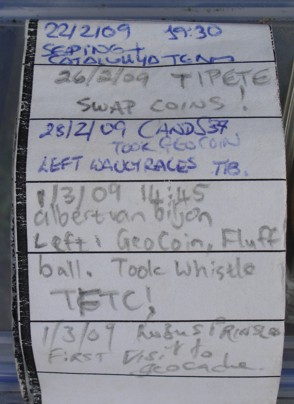 22/2/09 19:30
26/2/09 TIPETE
SWAP COINS!
28/2/09 CANDS34
TOOK GEOCOIN
LEFT WACKY RACES TB.
1/3/09 14:45
albert van biljon
Left: GeoCoin, Fluff
ball. Took Whistle
TFTC!
1/3/09
FIRST Visit to
GEOCACHE.